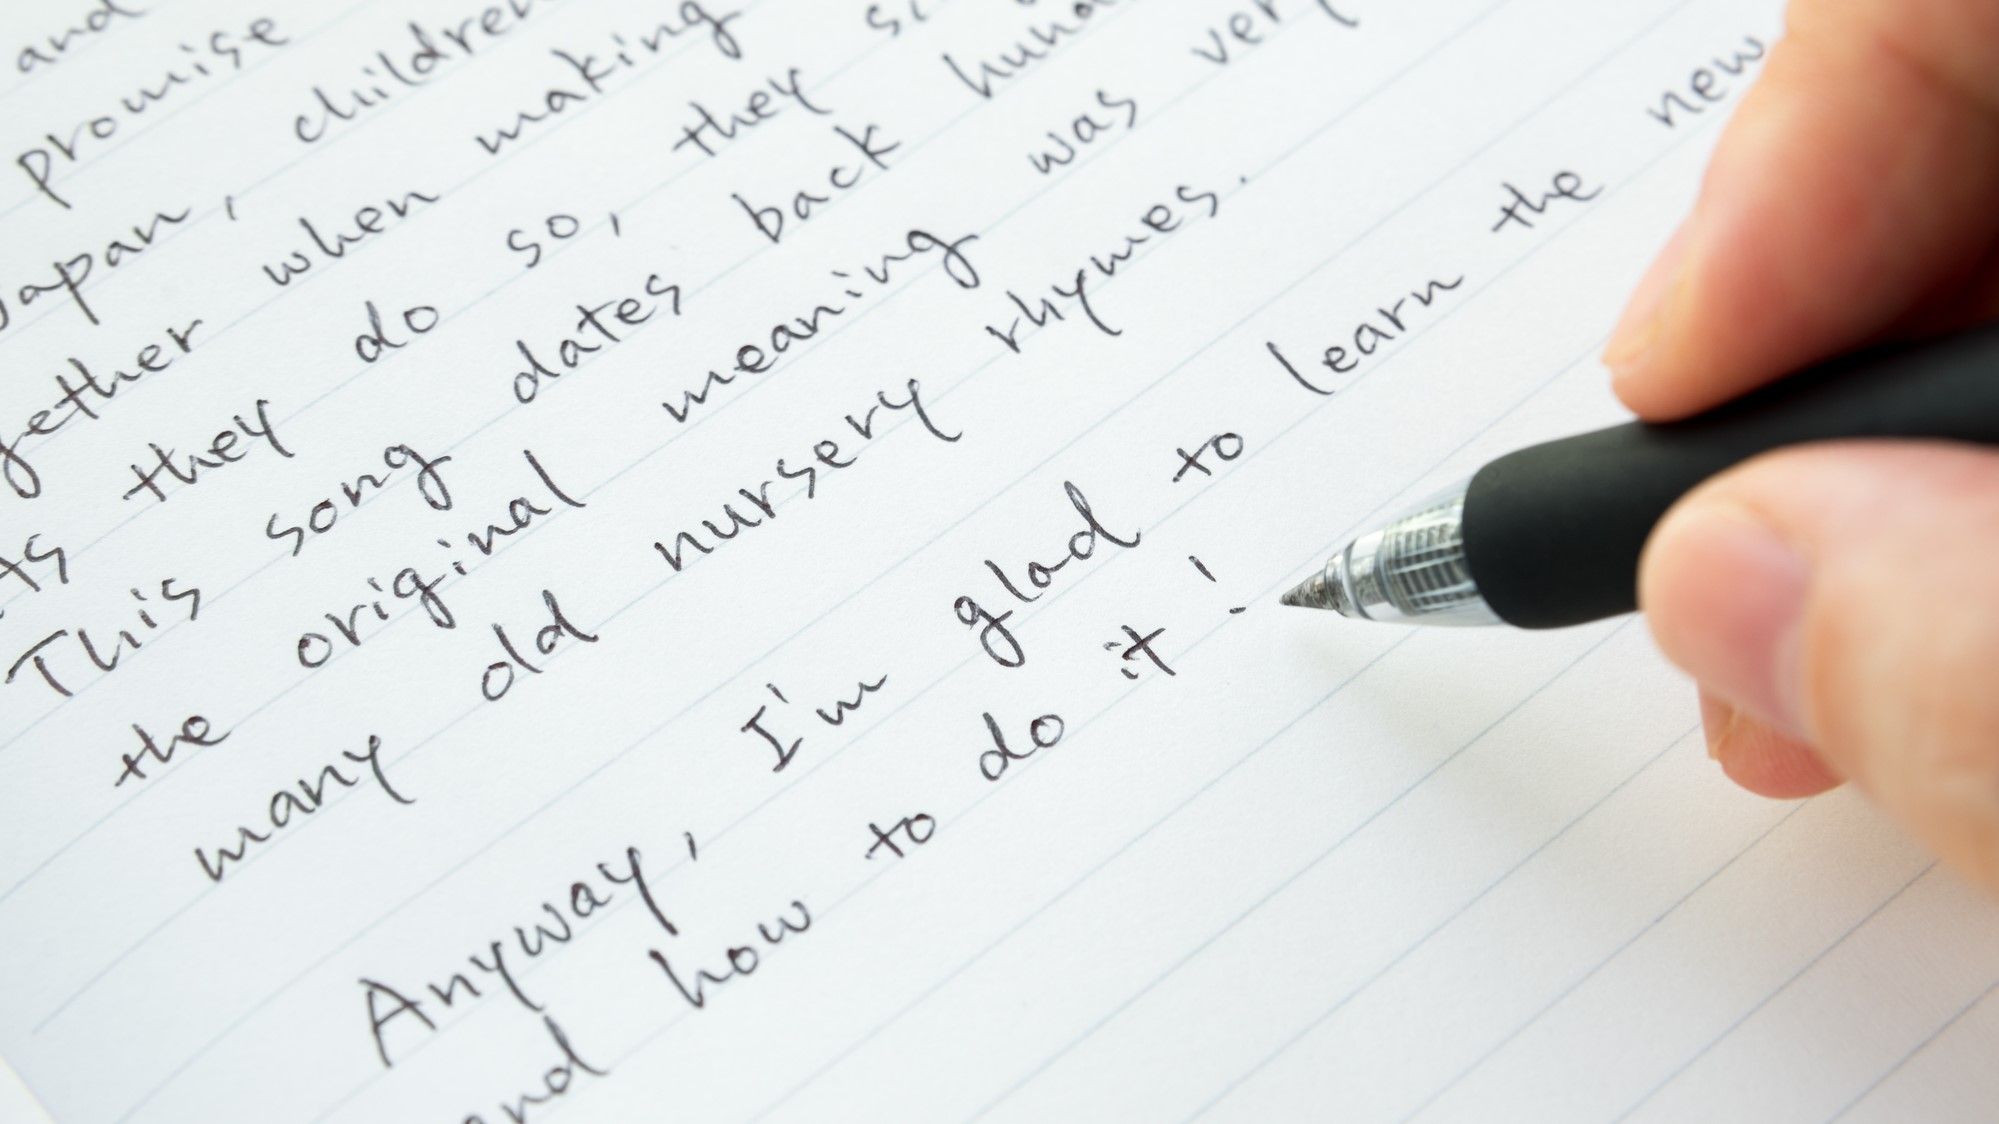 and
promise
Japan, children
gether when making
As they do so, they
This song dates back
the original meaning was very
many old nursery rhymes.
Anyway, I'm glad to learn the new
and how to do it !